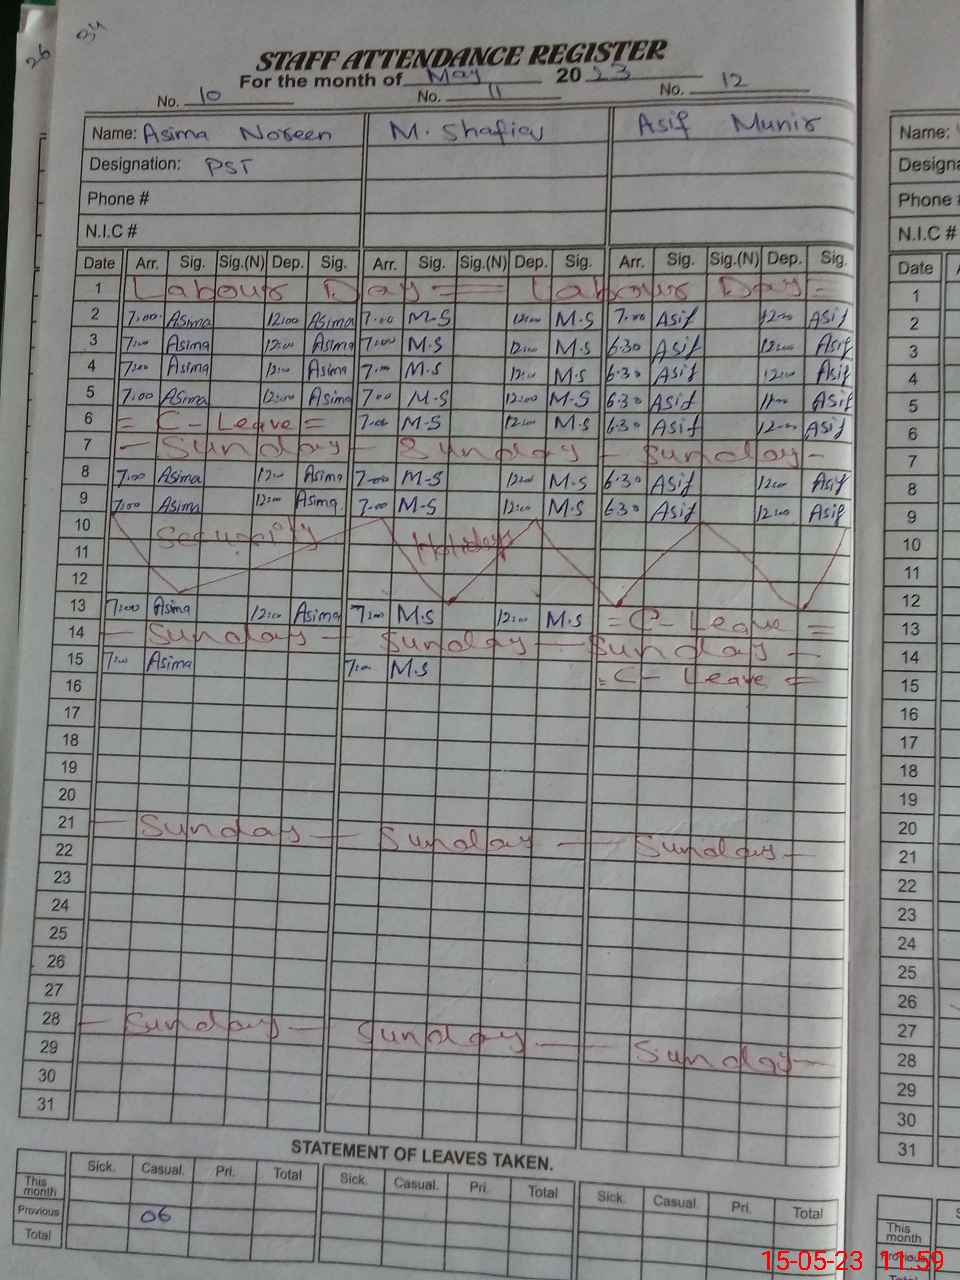 26
34
STAFF ATTENDANCE REGISTER
For the month of May 2023
No. 10 No. 11 No. 12
Name: Asima Noreen M. Shafiq Asif Munir
Designation: PST
Phone #
N.I.C #
Date Arr. Sig. Sig.(N) Dep. Sig. Arr. Sig. Sig.(N) Dep. Sig. Arr. Sig. Sig.(N) Dep. Sig.
1 Labour Day = Labour Day =
2 7:00 Asima 12:00 Asima 7:00 M-S 12:00 M.S 7:00 Asif 12:00 Asif
3 7:00 Asima 12:00 Asima 7:00 M.S 12:00 M.S 6:30 Asif 12:00 Asif
4 7:00 Asima 12:00 Asima 7:00 M.S 12:00 M.S 6:30 Asif 12:00 Asif
5 7:00 Asima 12:00 Asima 7:00 M-S 12:00 M-S 6:30 Asif Asif
6 = C- Leave = 7:00 M-S 12:00 M.S 6:30 Asif 12:00 Asif
7 - Sunday - Sunday - Sunday -
8 7:00 Asima 12:00 Asima 7:00 M-S 12:00 M-S 6:30 Asif 12:00 Asif
9 7:00 Asima 12:00 Asima 7:00 M-S 12:00 M.S 6:30 Asif 12:00 Asif
10 Security Holidays
11
12
13 7:00 Asima 12:00 Asima 7:00 M.S 12:00 M.S = C- Leave =
14 - Sunday - Sunday - Sunday -
15 7:00 Asima 7:00 M.S = C- Leave =
16
17
18
19
20
21 - Sunday - Sunday - Sunday -
22
23
24
25
26
27
28 - Sunday - Sunday - Sunday -
29
30
31
STATEMENT OF LEAVES TAKEN.
Sick. Casual. Pri. Total Sick. Casual. Pri. Total Sick. Casual. Pri. Total
This month
Previous 06
Total
Name:
Designa
Phone
N.I.C #
Date
1
2
3
4
5
6
7
8
9
10
11
12
13
14
15
16
17
18
19
20
21
22
23
24
25
26
27
28
29
30
31
This month
Previous
15-05-23 11:59